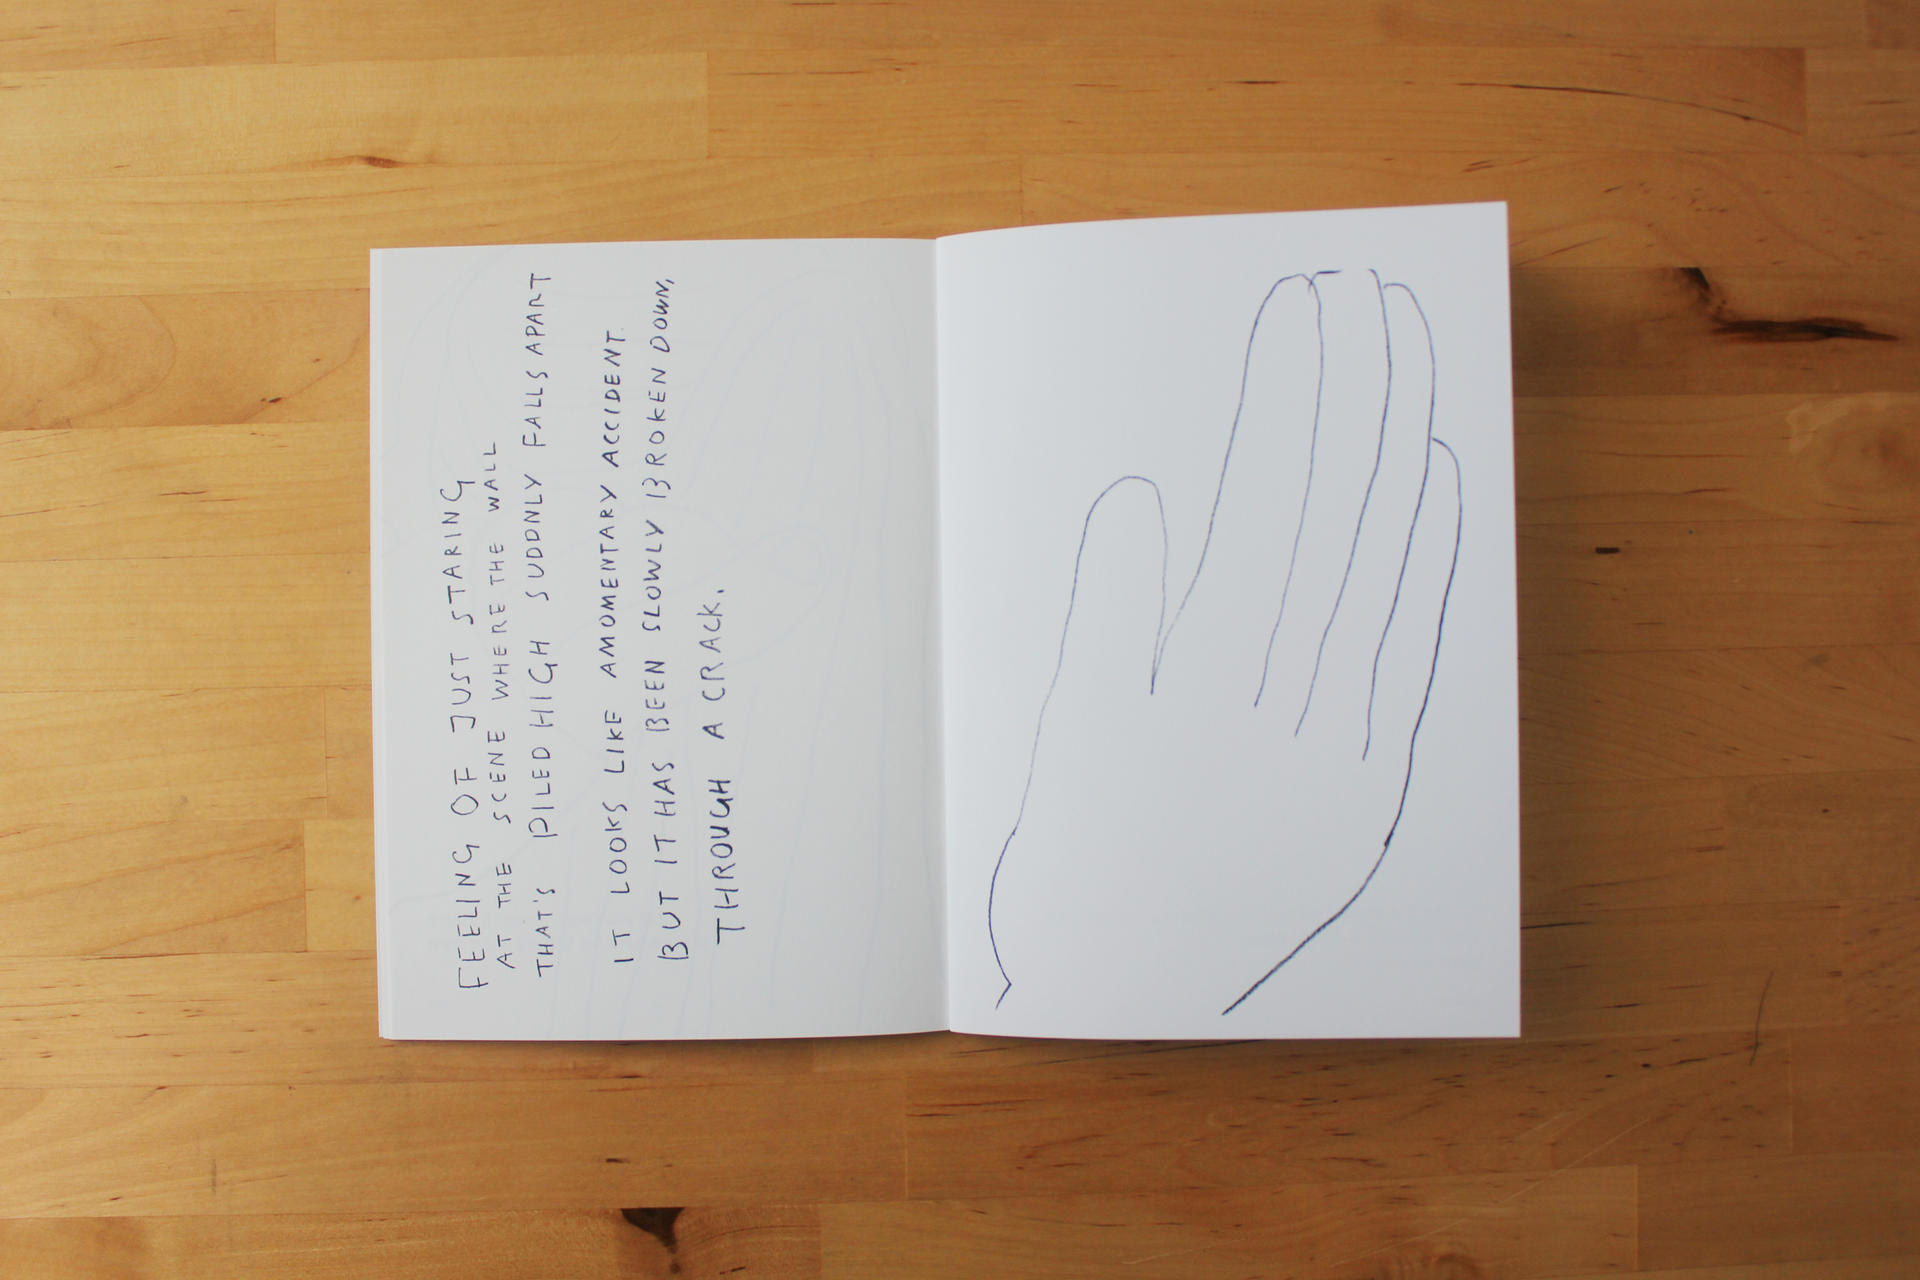 FEELING OF JUST STARING
AT THE SCENE WHERE THE WALL
THAT'S PILED HIGH SUDDNLY FALLS APART
IT LOOKS LIKE AMOMENTARY ACCIDENT.
BUT IT HAS BEEN SLOWLY BROKEN DOWN,
THROUGH A CRACK.